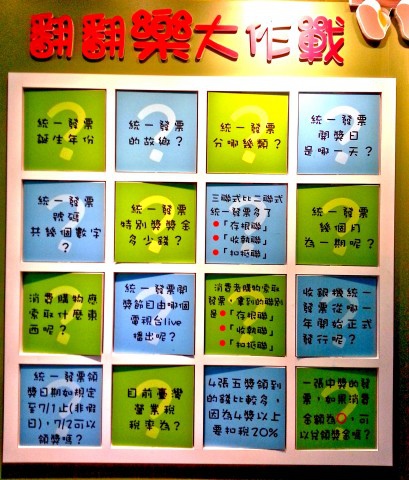 翻翻樂大作戰
統一發票
誕生年份
統一發票
的故鄉？
統一發票
分哪幾類？
統一發票
開獎日
是哪一天？
統一發票
號碼
共幾個數字
？
統一發票
特別獎獎金
多少錢？
三聯式比二聯式
統一發票多了
「存根聯」
「收執聯」
「扣抵聯」
統一發票
幾個月
為一期呢？
消費購物應
索取什麼東
西呢？
統一發票開
獎節目由哪個
電視台live
播出呢？
消費者購物索取
發票，拿到的聯別
是「存根聯」
「收執聯」
「扣抵聯」
收銀機統一
發票從哪一
年開始正式
發行呢？
統一發票領
獎日期如規定
至7/1止(非假
日)，7/2可以
領獎嗎？
目前臺灣
營業稅
稅率為？
4張五獎領到
的錢比較多，
因為4獎以上
要扣稅20%
一張中獎的發
票，如果消費
金額為0，可
以兌領獎金嗎？